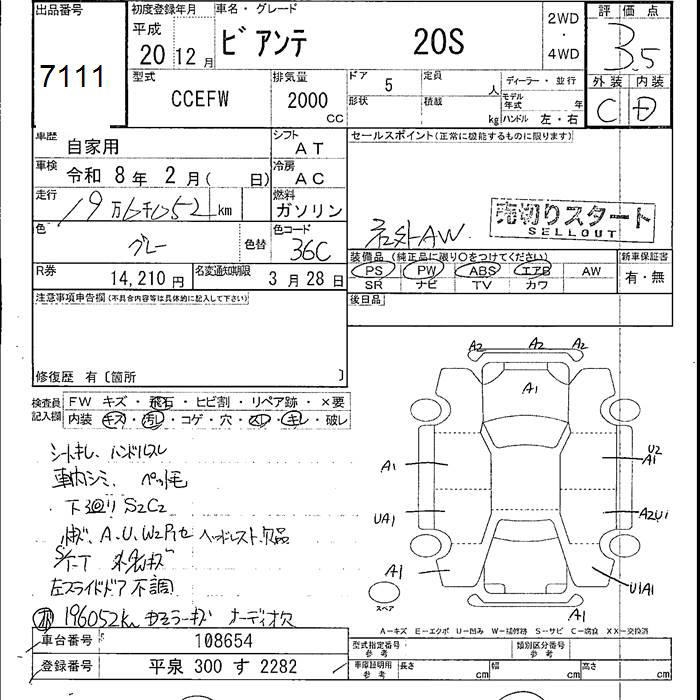 出品番号 初度登録年月 車名・グレード 評価点
平成 20年12月 ビアンテ 20S 2WD・4WD 3.5
7111
型式 排気量 ドア 5 定員 人 ディーラー・並行 外装 内装
CCEFW 2000cc 形状 積載 kg モデル年式 年 ハンドル 左・右 C D
車歴 自家用 シフト AT セールスポイント(正常に機能するものに限ります)
車検 令和 8年 2月( 日) 冷房 AC
走行 19万6千052km 燃料 ガソリン 売切りスタート
SELLOUT
色 グレー 色替 色コード 36C 社外AW.
装備品(純正品に限り○をつけてください) 新車保証書
PS PW ABS エアB AW 有・無
R券 14,210円 名変通知期限 3月28日 SR ナビ TV カワ
注意事項申告欄(不具合内容等は具体的に記入して下さい) 後日品
修復歴 有〔箇所 〕
検査員記入欄 FW キズ・飛石・ヒビ割・リペア跡・×要
内装 キズ・汚レ・コゲ・穴・・キレ・破レ
シートキレ、ハンドルスレ
車内シミ、ペット毛
下廻り S2C2
A.U.W2P1セ ヘッドレスト欠品
左スライドドア不調
196052km オーディオ欠
A2 A2 A2
A1
A1 U2 A1
UA1 A2U1
A1 U1A1
A1
スペア
A-キズ E-エクボ U-凹み W-補修跡 S-サビ C-腐食 XX-交換済
車台番号 108654 型式指定番号 参考 類別区分番号 参考
登録番号 平泉 300 す 2282 車庫証明用 参考 長さ cm 幅 cm 高さ cm